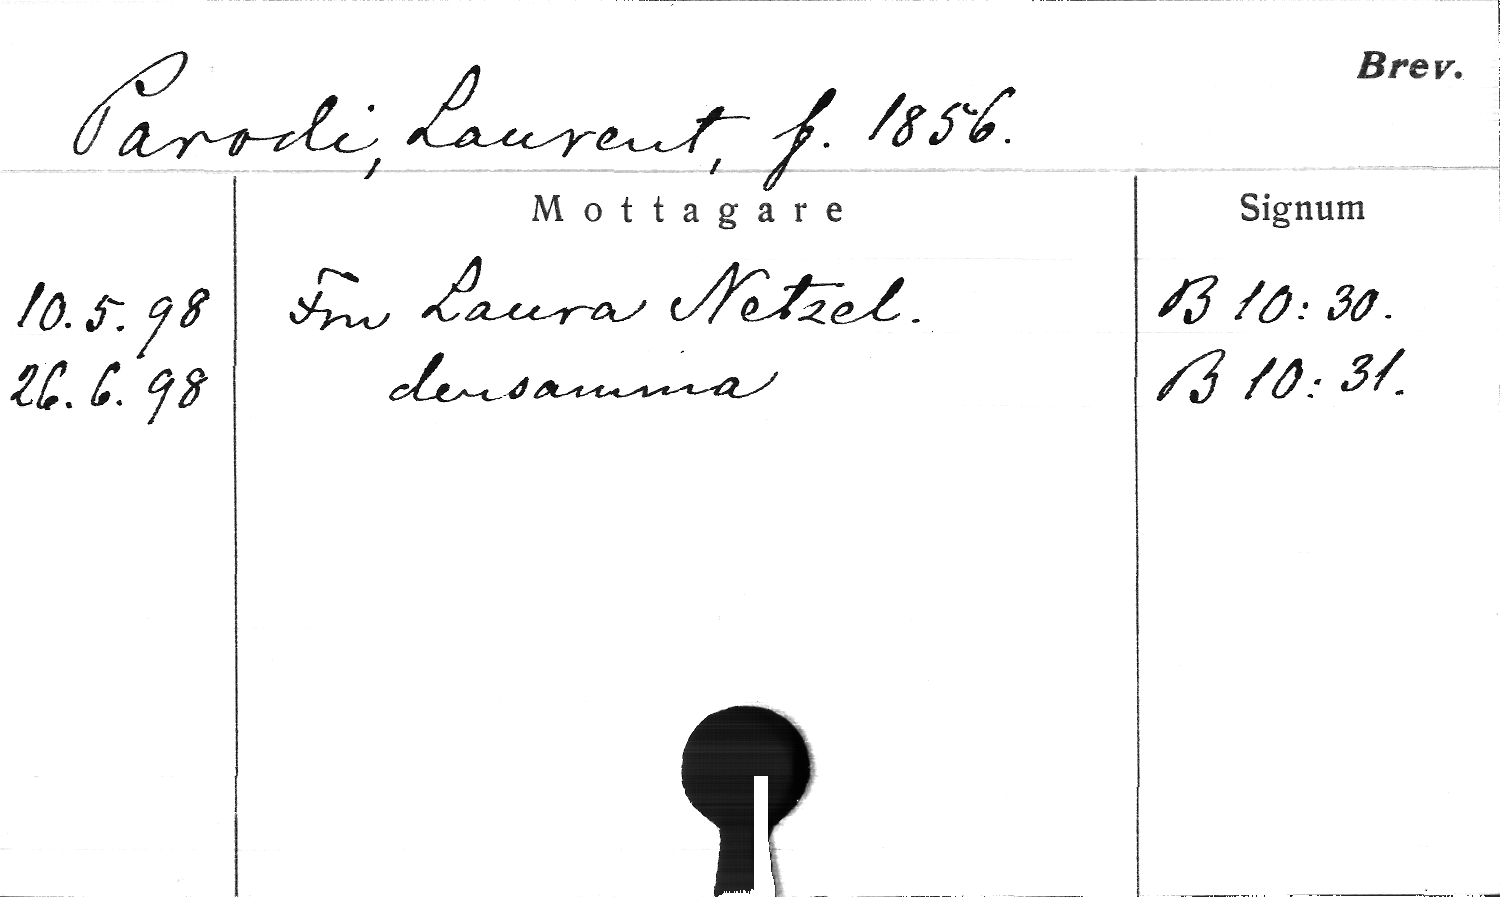 Brev.
Parodi, Laurent, f. 1856.
Mottagare Signum
10.5.98 Fru Laura Netzel. B 10:30.
26.6.98 densamma B 10:31.